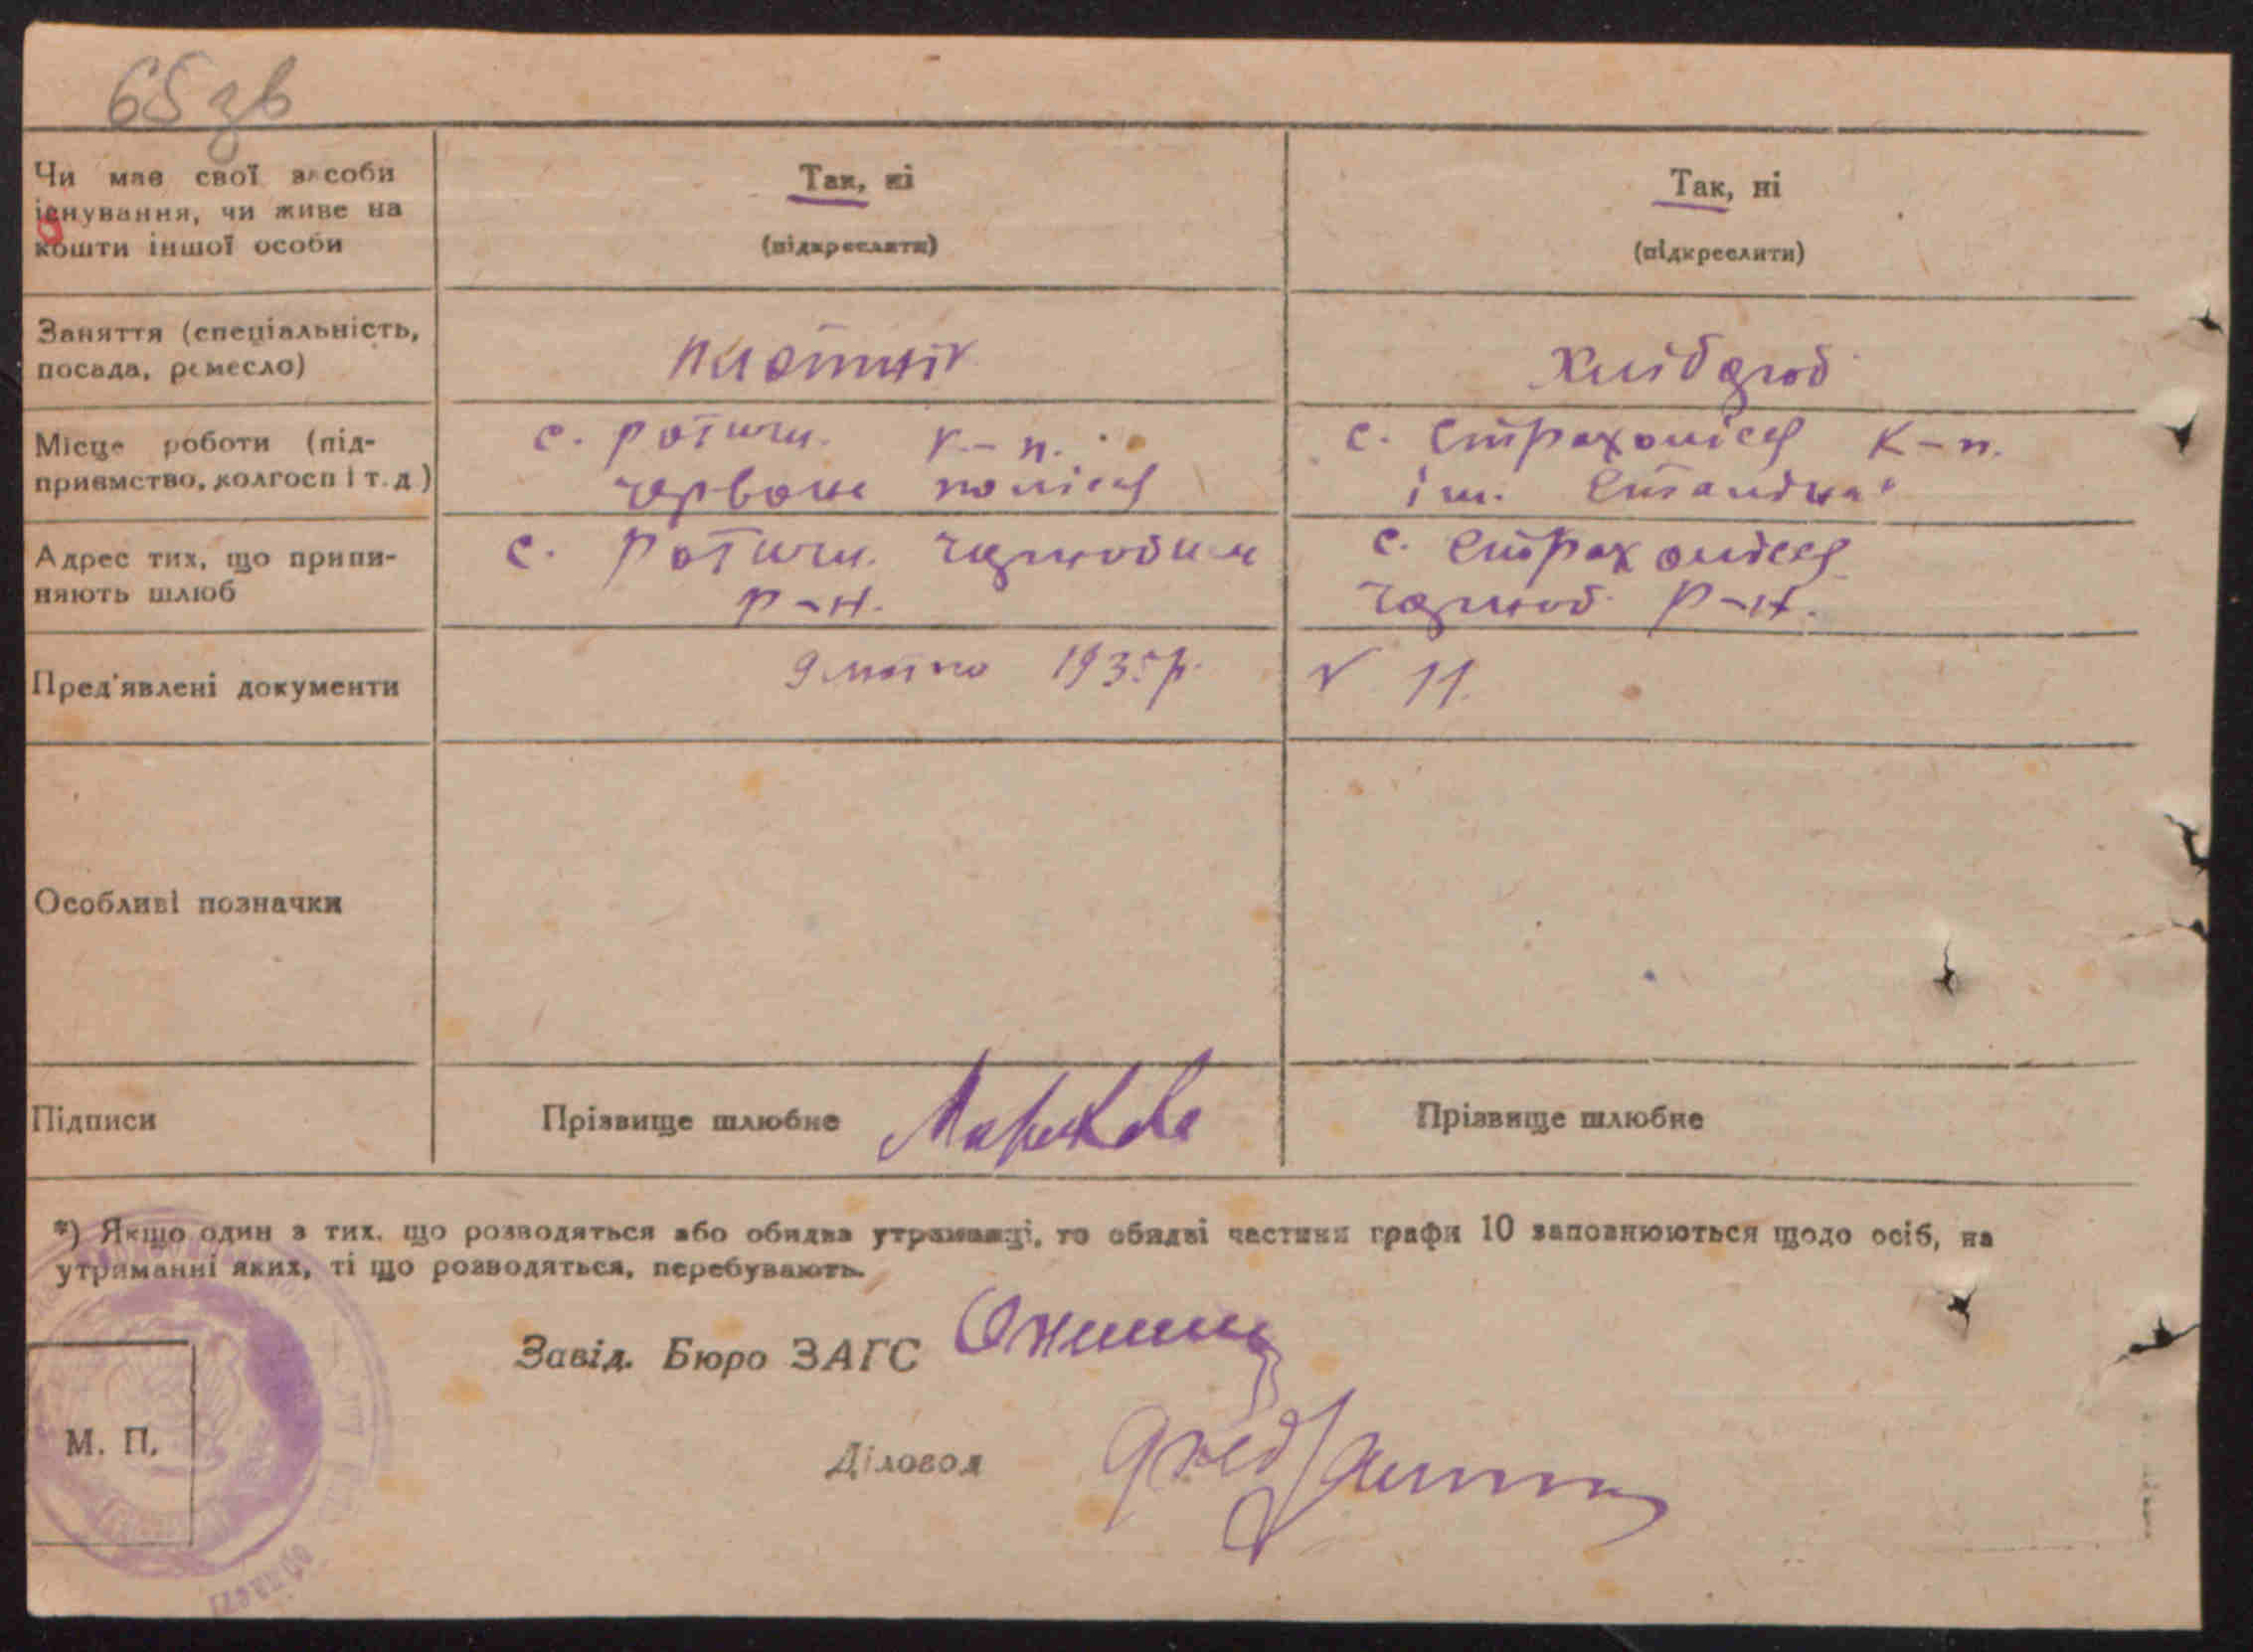 65 зв
Чи має свої засоби
існування, чи живе на
кошти іншої особи
Так, ні
(підкреслити)
Так, ні
(підкреслити)
Заняття (спеціальність,
посада, ремесло)
плотнік
Хлібороб
Місце роботи (під-
приємство, колгосп і т. д)
с. Ротичи. к-п.
червоне полісся
с. Страхолісся к-п.
ім. Сталіна
Адрес тих, що припи-
няють шлюб
с. Ротичи. Чорнобил
р-н.
с. Страхолісся
Чорноб р-н.
Пред'явлені документи
9 лютого 1935р.
№ 11.
Особливі позначки
Підписи
Прізвище шлюбне
Прізвище шлюбне
*) Якщо один з тих, що розводяться або обидва утриманці, то обидві частини графи 10 заповнюються щодо осіб, на
утриманні яких, ті що розводяться, перебувають.
Завід. Бюро ЗАГС
М. П.
Діловод